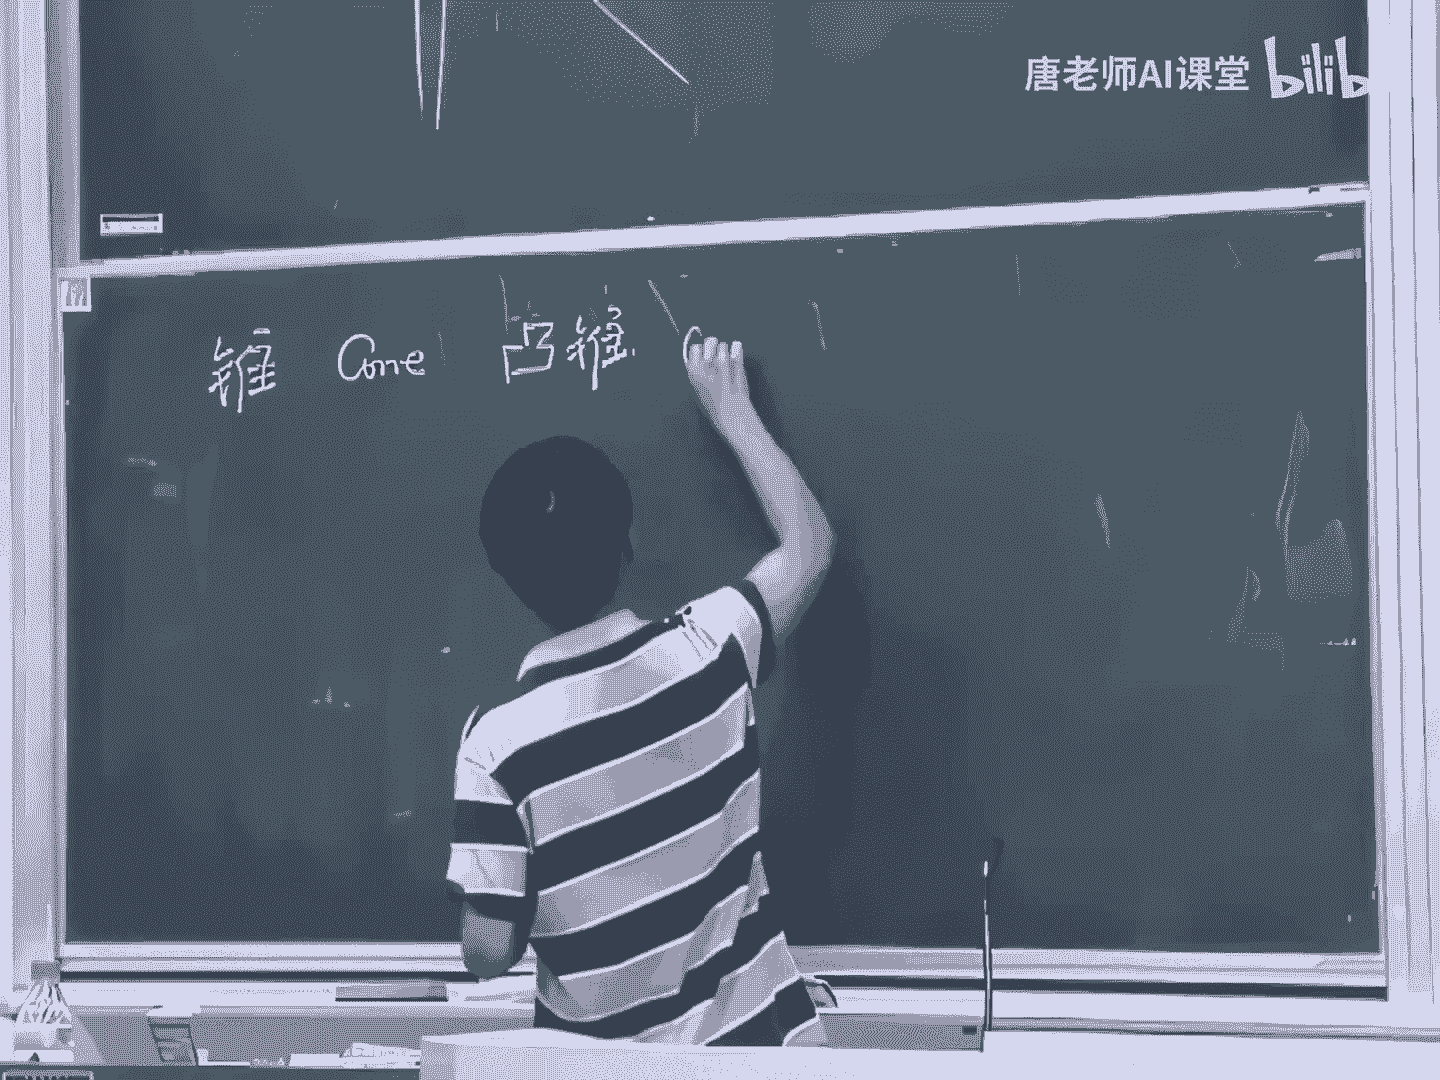 唐老师AI课堂 bilib
锥 Cone 凸锥 C